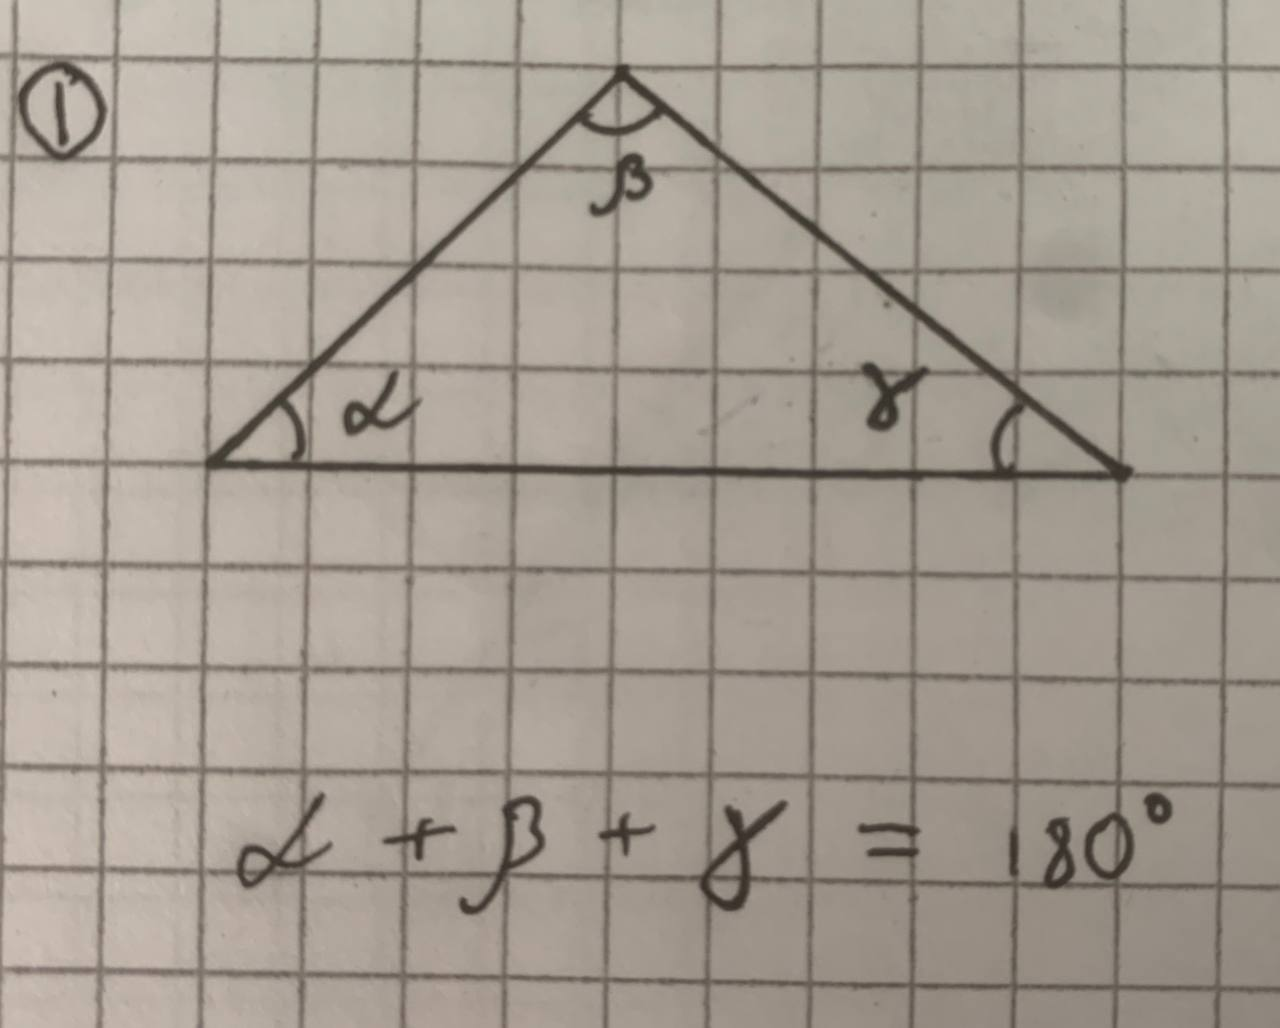 ①
β
α γ
α + β + γ = 180°